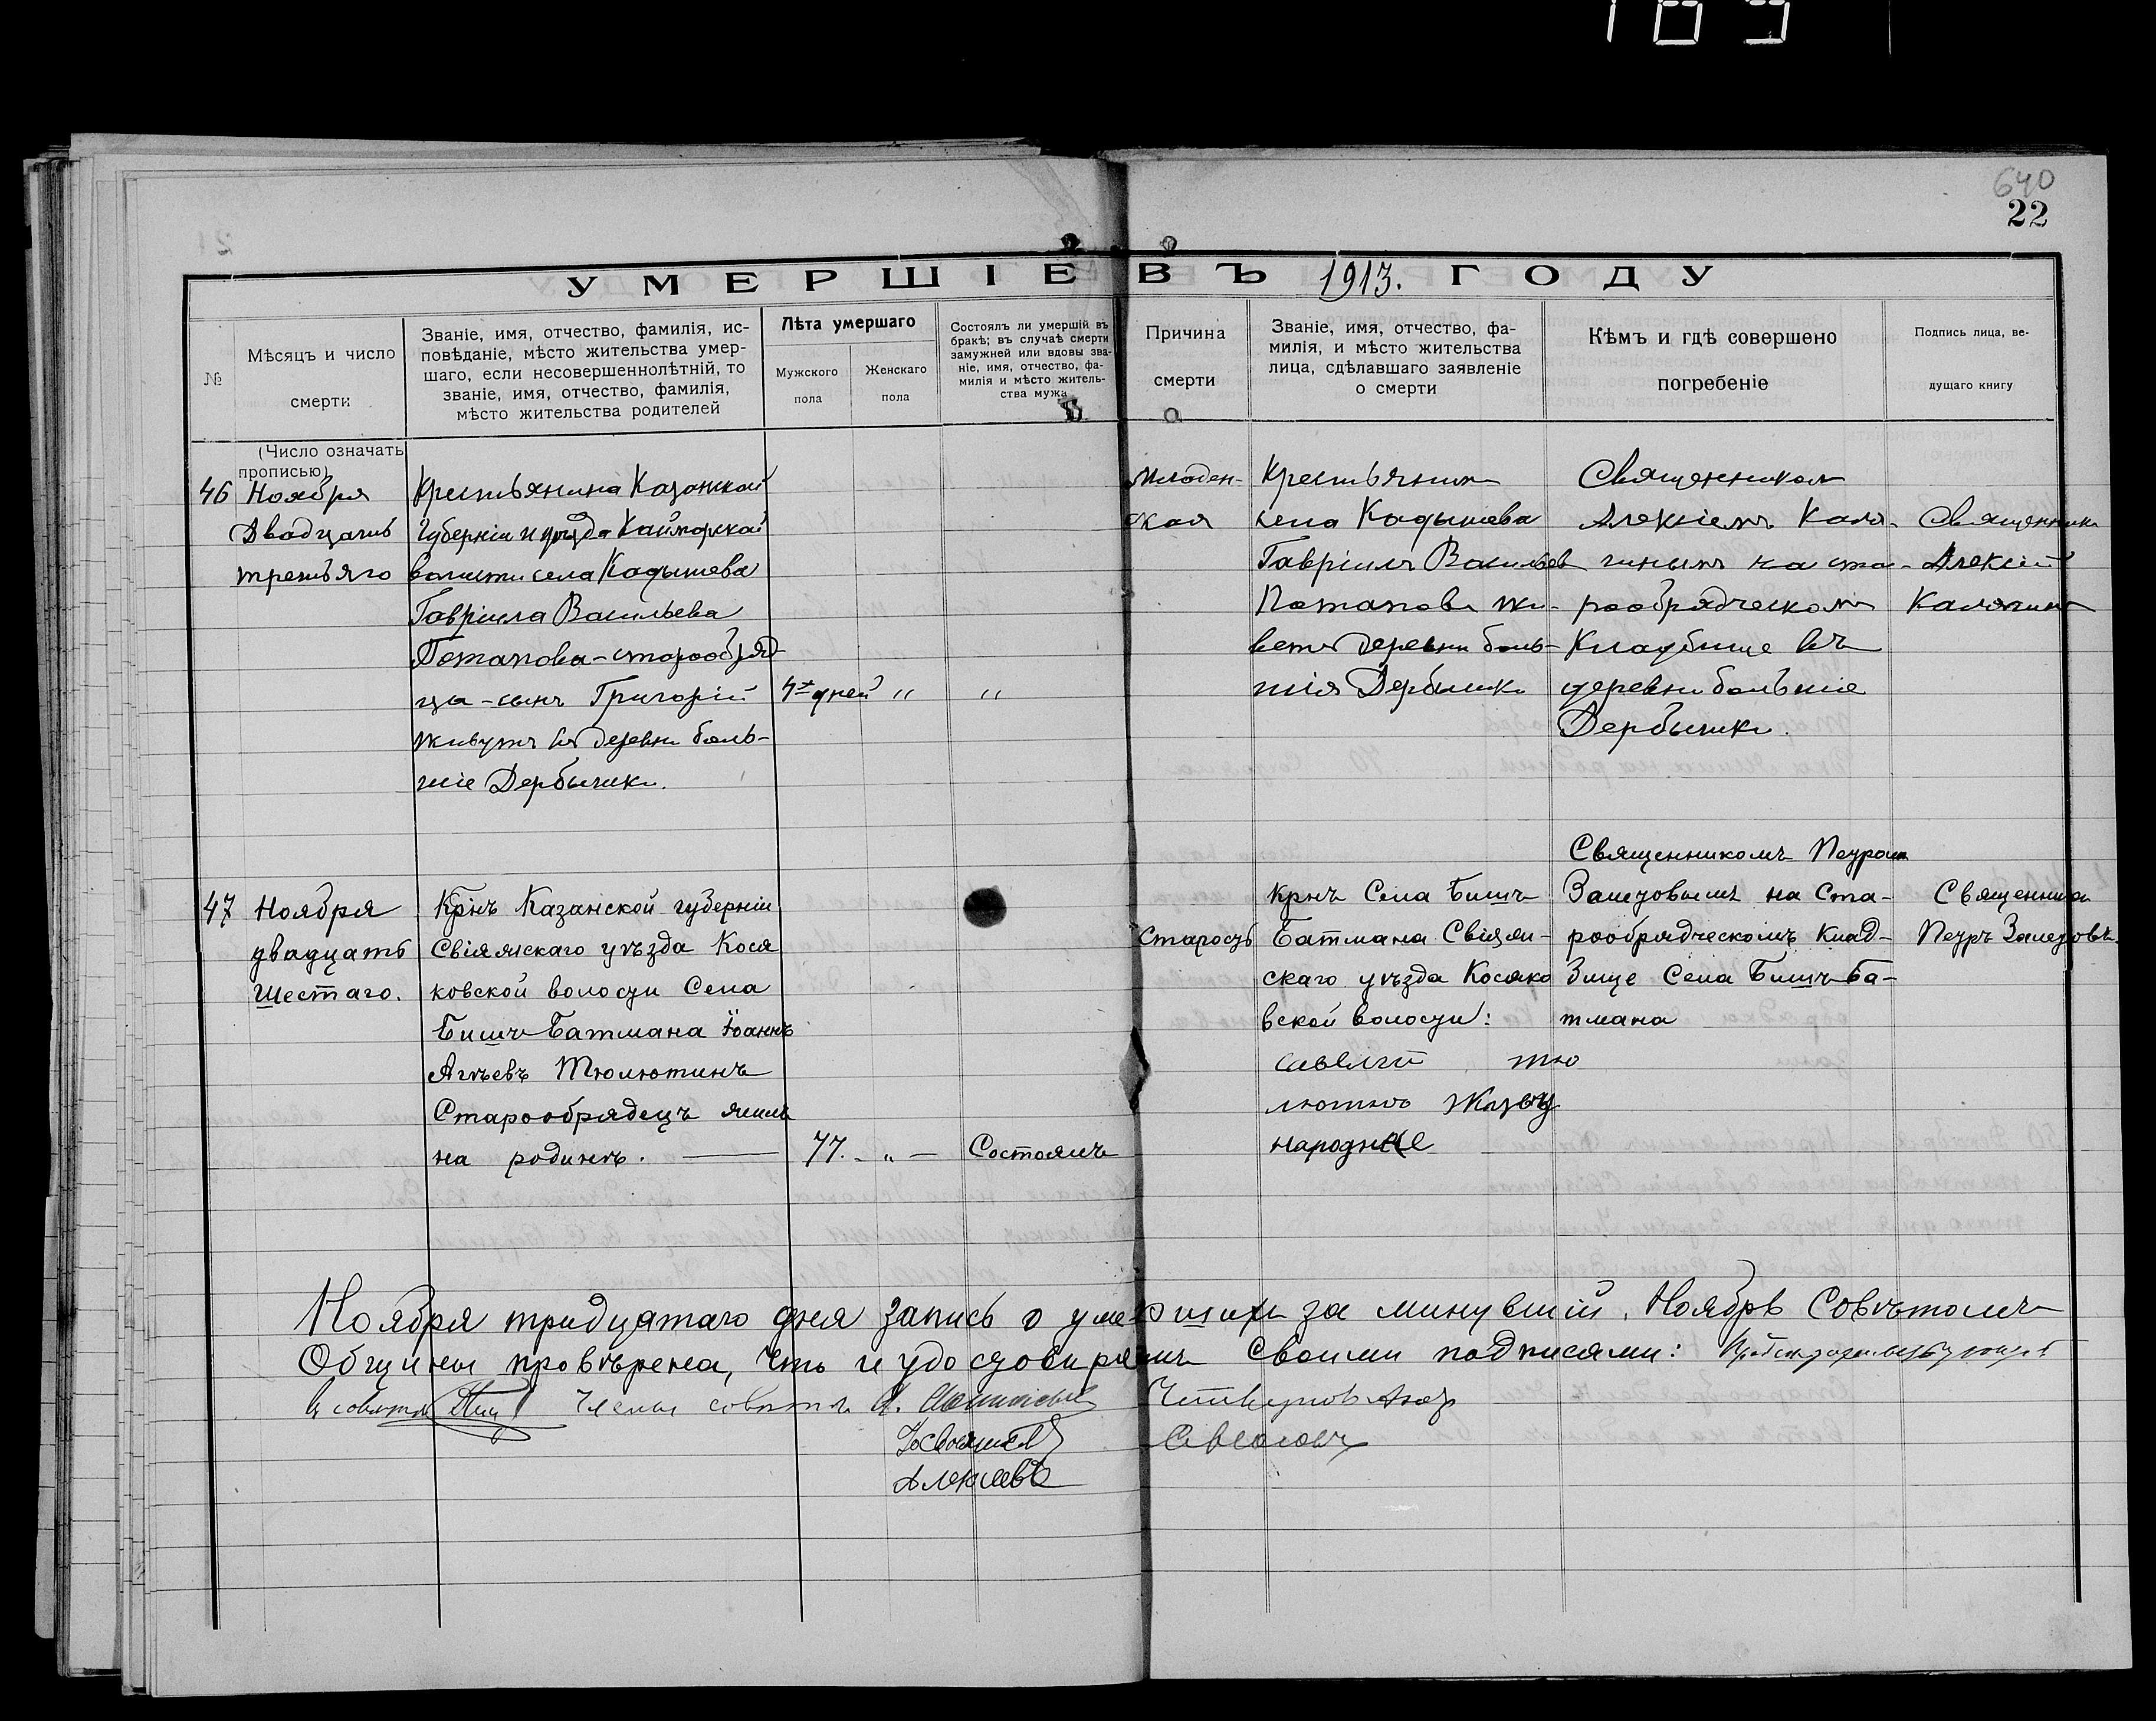 189
640
22
УМЕРШІЕ ВЪ 1913. ГОДУ
№
Мѣсяцъ и число
смерти
Званіе, имя, отчество, фамилія, ис-
повѣданіе, мѣсто жительства умер-
шаго, если несовершеннолѣтній, то
званіе, имя, отчество, фамилія,
мѣсто жительства родителей
Лѣта умершаго
Мужского
пола
Женскаго
пола
Состоялъ ли умершій въ
бракѣ; въ случаѣ смерти
замужней или вдовы зва-
ніе, имя, отчество, фа-
милія и мѣсто житель-
ства мужа
Причина
смерти
Званіе, имя, отчество, фа-
милія, и мѣсто жительства
лица, сдѣлавшаго заявленіе
о смерти
Кѣмъ и гдѣ совершено
погребеніе
Подпись лица, ве-
дущаго книгу
(Число означать
прописью)
46
Ноября
Двадцать
третьяго
Крестьянина Казанской
Губерніи и уѣзда Каймарской
волости села Кадышева
Гавріила Васильева
Потапова-старообряд-
ца-сынъ Григорій
живутъ въ деревни боль-
шіе Дербышки.
4х дней
"
"
Младен-
ская
Крестьянин
села Кадышева
Гавріилъ Васильев
Потаповъ жи-
ветъ деревни боль-
шія Дербышки
Священником
Алексіемъ Каля-
гинымъ на ста-
рообрядческомъ
Кладбище въ
деревни большіе
Дербышки.
Священникъ
Алексій
Калягинъ
47
Ноября
двадцать
Шестаго.
Крнъ Казанской губерніи
Свіяжскаго уѣзда Кося
ковской волости Села
Бишъ-Батмана Іоаннъ
Агѣевъ Тюлютинъ
Старообрядецъ жилъ
на родинѣ.
77.
"
Состоялъ
Старость
Крнъ Села Бишъ
Батмана Свіяж-
скаго уѣзда Косяко
вской волости:
савелій тю
лютинъ Живу
народине
Священникомъ Петромъ
Залетовымъ на Ста-
рообрядческомъ Клад-
бище Села Бишъ-Ба-
тмана
Священникъ
Петръ Залетовъ.
Ноября тридцатаго дня запись о умершихъ за минувшій. Ноябрь Совѣтомъ
Общины провѣрена, что и удостовѣряемъ Своими подписями: Председательствующій
въ совѣтѣ Члены совѣта
Алексеевъ